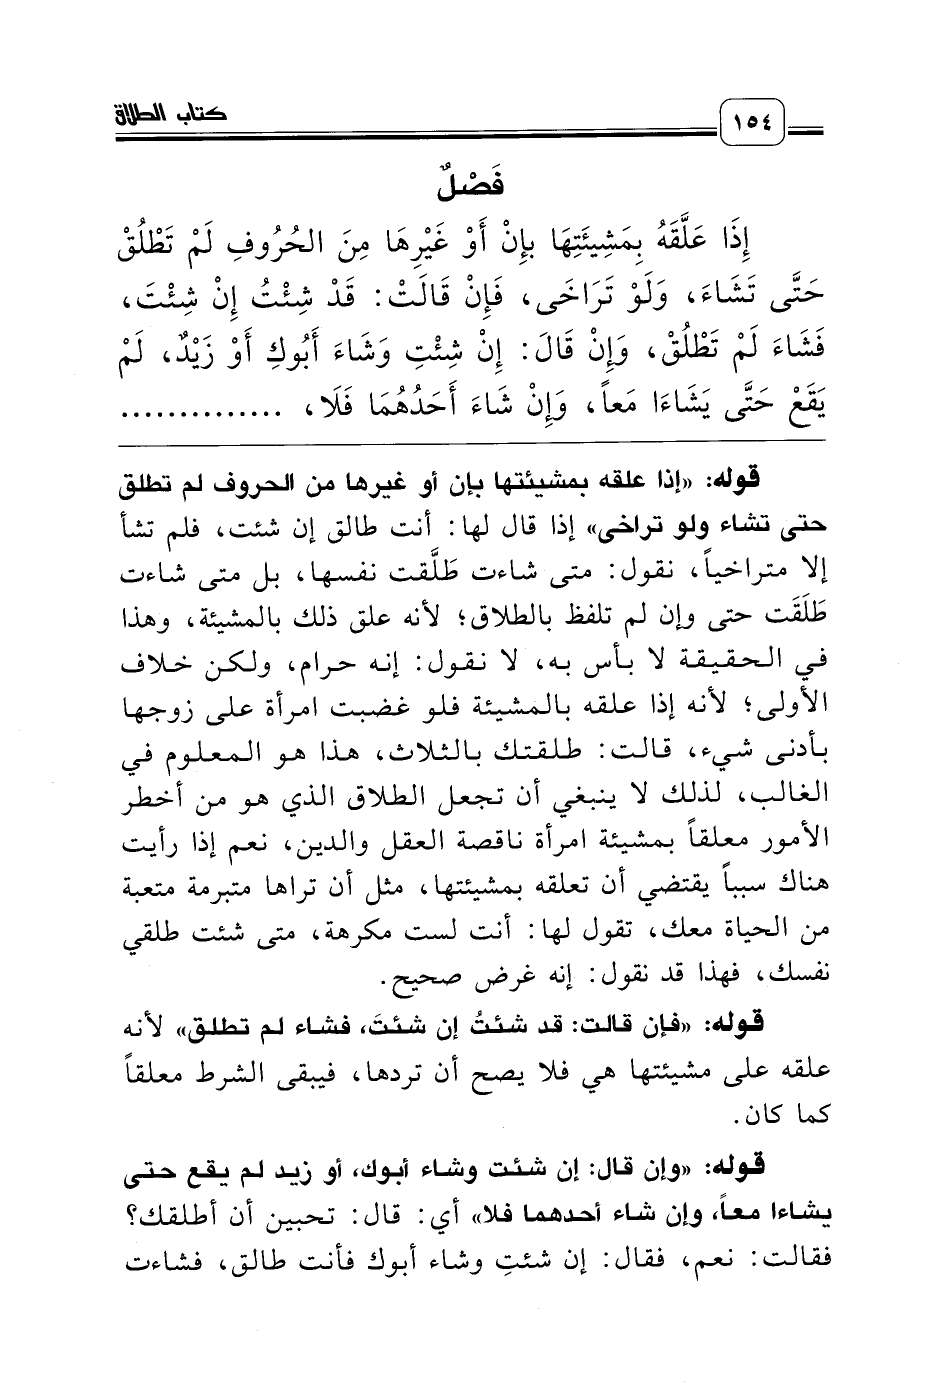 كتاب الطلاق
١٥٤
فَصْلٌ
إِذَا عَلَّقَهُ بِمَشِيئَتِهَا بِإِنْ أَوْ غَيْرِهَا مِنَ الحُرُوفِ لَمْ تَطْلُقْ
حَتَّى تَشَاءَ، وَلَوْ تَرَاخَى، فَإِنْ قَالَتْ: قَدْ شِئْتُ إِنْ شِئْتَ،
فَشَاءَ لَمْ تَطْلُقْ، وَإِنْ قَالَ: إِنْ شِئْتِ وَشَاءَ أَبُوكِ أَوْ زَيْدٌ، لَمْ
يَقَعْ حَتَّى يَشَاءَا مَعاً، وَإِنْ شَاءَ أَحَدُهُمَا فَلَا، ..............
قوله: «إذا علقه بمشيئتها بإن أو غيرها من الحروف لم تطلق
حتى تشاء ولو تراخى» إذا قال لها: أنت طالق إن شئت، فلم تشأ
إلا متراخياً، نقول: متى شاءت طَلَّقت نفسها، بل متى شاءت
طَلَقَت حتى وإن لم تلفظ بالطلاق؛ لأنه علق ذلك بالمشيئة، وهذا
في الحقيقة لا بأس به، لا نقول: إنه حرام، ولكن خلاف
الأولى؛ لأنه إذا علقه بالمشيئة فلو غضبت امرأة على زوجها
بأدنى شيء، قالت: طلقتك بالثلاث، هذا هو المعلوم في
الغالب، لذلك لا ينبغي أن تجعل الطلاق الذي هو من أخطر
الأمور معلقاً بمشيئة امرأة ناقصة العقل والدين، نعم إذا رأيت
هناك سبباً يقتضي أن تعلقه بمشيئتها، مثل أن تراها متبرمة متعبة
من الحياة معك، تقول لها: أنت لست مكرهة، متى شئت طلقي
نفسك، فهذا قد نقول: إنه غرض صحيح.
قوله: «فإن قالت: قد شئتُ إن شئتَ، فشاء لم تطلق» لأنه
علقه على مشيئتها هي فلا يصح أن تردها، فيبقى الشرط معلقاً
كما كان.
قوله: «وإن قال: إن شئت وشاء أبوك، أو زيد لم يقع حتى
يشاءا معاً، وإن شاء أحدهما فلا» أي: قال: تحبين أن أطلقك؟
فقالت: نعم، فقال: إن شئتِ وشاء أبوك فأنت طالق، فشاءت